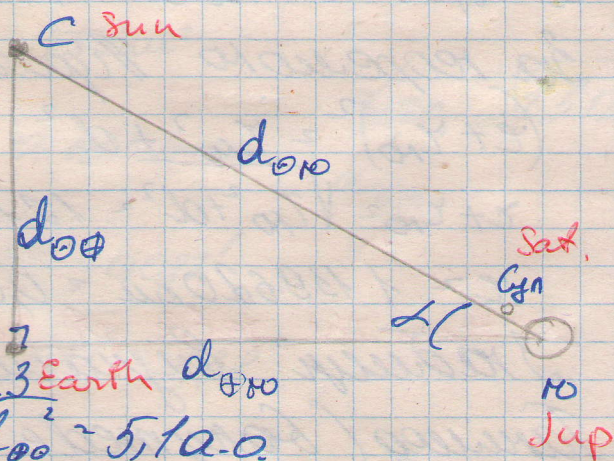 C Sun
d⊙ю
d⊙⊕
Sat.
Суп
α
З Earth
d⊕ю
ю
Jup
² = 5,1 а.о.